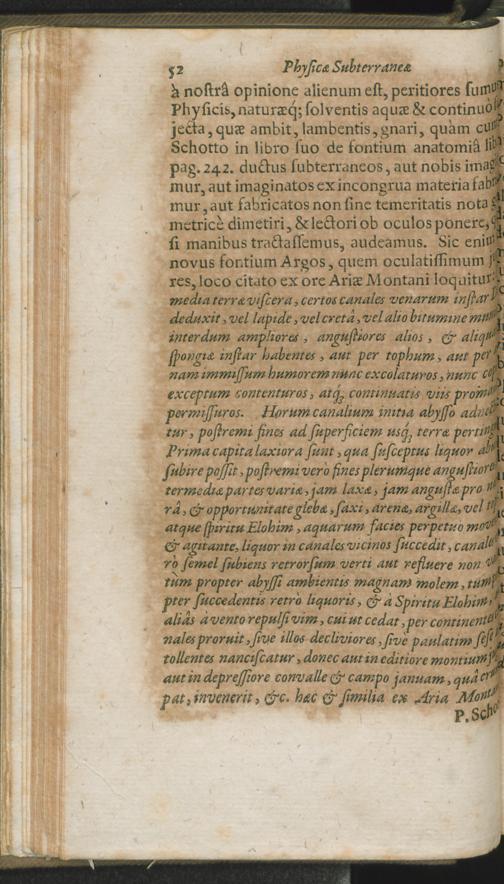 52 Physicæ Subterraneæ
à nostrâ opinione alienum est, peritiores sumu
Physicis, naturæq́; solventis aquæ & continuò
jecta, quæ ambit, lambentis, gnari, quàm cum
Schotto in libro suo de fontium anatomiâ lib
pag. 242. ductus subterraneos, aut nobis imag
mur, aut imaginatos ex incongrua materia fabr
mur, aut fabricatos non sine temeritatis nota
metricè dimetiri, & lectori ob oculos ponere,
si manibus tractassemus, audeamus. Sic enim
novus fontium Argos, quem oculatissimum
res, loco citato ex ore Ariæ Montani loquitur:
media terræ viscera, certos canales venarum instar
deduxit, vel lapide, vel cretâ, vel alio bitumine mun
interdum ampliores, angustiores alios, & aliqu
spongiæ instar habentes, aut per tophum, aut per
nam immissum humorem nunc excolaturos, nunc
exceptum contenturos, atq́; continuatis viis prom
permissuros. Horum canalium initia abysso
tur, postremi fines ad superficiem usq́; terræ perting
Prima capita laxiora sunt, qua susceptus liquor
subire possit, postremi verò fines plerumque angustiore
termediæ partes variæ, jam laxæ, jam angustæ pro
râ, & opportunitate glebæ, saxi, arenæ, argillæ, vel
atque spiritu Elohim, aquarum facies perpetuo mov
& agitante, liquor in canales vicinos succedit, canale
rò semel subiens retrorsum verti aut refluere non
tùm propter abyssi ambientis magnam molem, tùm
pter succedentis retrò liquoris, & à Spiritu Elohim,
aliâs à vento repulsi vim, cui ut cedat, per continente
nales proruit, sive illos decliviores, sive paulatim sese
tollentes nanciscatur, donec aut in editiore montium
aut in depressiore convalle & campo januam, quâ
pat, invenerit, &c. hæc & similia ex Aria Mont
P. Scho